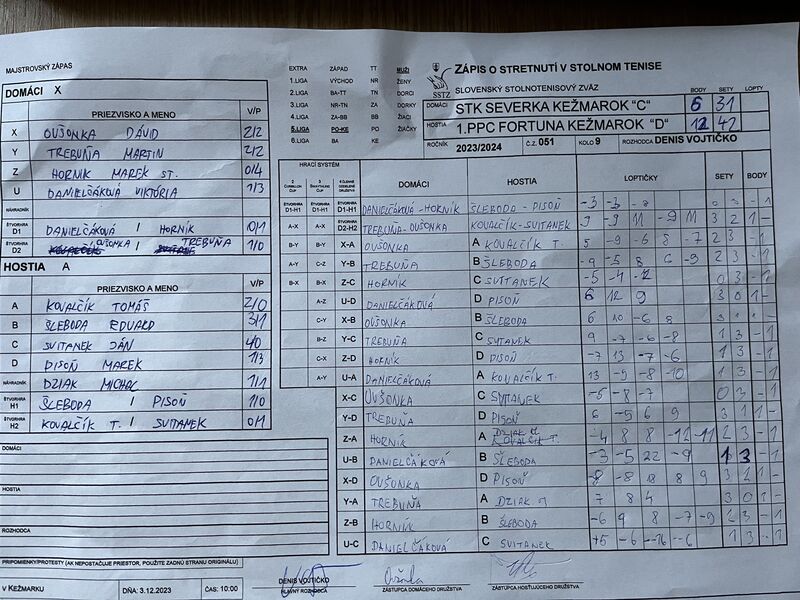 MAJSTROVSKÝ ZÁPAS
DOMÁCI X
PRIEZVISKO A MENO V/P
X OUŠONKA DÁVID 2/2
Y TREBUŇA MARTIN 2/2
Z HORNIK MAREK ST. 0/4
U DANIELČÁKOVÁ VIKTÓRIA 1/3
NÁHRADNÍK
ŠTVORHRA D1 DANIELČÁKOVÁ / HORNÍK 0/1
ŠTVORHRA D2 OUŠONKA / TREBUŇA 1/0
HOSTIA A
PRIEZVISKO A MENO V/P
A KOVALČÍK TOMÁŠ 2/0
B ŠLEBODA EDUARD 3/1
C SVITANEK JÁN 4/0
D PISOŇ MAREK 1/3
NÁHRADNÍK DZIAK MICHAL 1/1
ŠTVORHRA H1 ŠLEBODA / PISOŇ 1/0
ŠTVORHRA H2 KOVALČÍK T. / SVITANEK 0/1
DOMÁCI
HOSTIA
ROZHODCA
PRIPOMIENKY/PROTESTY (AK NEPOSTAČUJE PRIESTOR, POUŽITE ZADNÚ STRANU ORIGINÁLU)
V KEŽMARKU DŇA: 3.12.2023 ČAS: 10:00
EXTRA ZÁPAD TT MUŽI
1.LIGA VÝCHOD NR ŽENY
2.LIGA BA-TT DN DORCI
3.LIGA NR-TN ZA DORKY
4.LIGA ZA-BB BB ŽIACI
5.LIGA PO-KE PO ŽIAČKY
6.LIGA BA KE
SSTZ
ZÁPIS O STRETNUTÍ V STOLNOM TENISE
SLOVENSKÝ STOLNOTENISOVÝ ZVÄZ BODY SETY LOPTY
DOMÁCI STK SEVERKA KEŽMAROK "C" 6 31
HOSTIA 1.PPC FORTUNA KEŽMAROK "D" 12 42
ROČNÍK 2023/2024 Č.Z. 051 KOLO 9 ROZHODCA DENIS VOJTIČKO
HRACÍ SYSTÉM
DOMÁCI HOSTIA LOPTIČKY SETY BODY
ŠTVORHRA D1-H1 ŠTVORHRA D1-H1 ŠTVORHRA D1-H1 DANIELČÁKOVÁ-HORNÍK ŠLEBODA - PISOŇ -3 -3
A-X A-X ŠTVORHRA D2-H2 TREBUŇA-OUŠONKA KOVALČÍK-SVITANEK 9 -9 11 -9 11 3 2 1 -
B-Y B-Y X-A OUŠONKA A KOVALČÍK T. 5 -9 -6 8 -7 2 3 - 1
A-Y C-Z Y-B TREBUŇA B ŠLEBODA -9 -5 8 6 -9 2 3 - 1
B-X B-X Z-C HORNÍK C SVITANEK -5 -4 -2 0 3 - 1
A-Z U-D DANIELČÁKOVÁ D PISOŇ 6 12 9 3 0 1 -
C-Y X-B OUŠONKA B ŠLEBODA 6 10 -6 3 1
B-Z Y-C TREBUŇA C SVITANEK 9 -7 -6 -8 1 3 - 1
C-X Z-D HORNÍK D PISOŇ -7 13 -7 -6 1 3 - 1
A-Y U-A DANIELČÁKOVÁ A KOVALČÍK T. 13 -9 -8 -10 1 3 - 1
X-C OUŠONKA C SVITANEK -5 -8 -7 0 3 - 1
Y-D TREBUŇA D PISOŇ 6 -5 6 9 3 1 1 -
Z-A HORNÍK A DZIAK M -4 8 8 -12 -11 2 3 - 1
U-B DANIELČÁKOVÁ B ŠLEBODA -3 -5 22 -9 1 3 - 1
X-D OUŠONKA D PISOŇ -8 -8 8 9 3 2 1 -
Y-A TREBUŇA A DZIAK M 7 8 4 3 0 1 -
Z-B HORNÍK B ŠLEBODA -6 9 8 -7 -9 2 3 - 1
U-C DANIELČÁKOVÁ C SVITANEK -6 -16 -6 1 3 - 1
DENIS VOJTIČKO
HLAVNÝ ROZHODCA
ZÁSTUPCA DOMÁCEHO DRUŽSTVA
ZÁSTUPCA HOSŤUJÚCEHO DRUŽSTVA